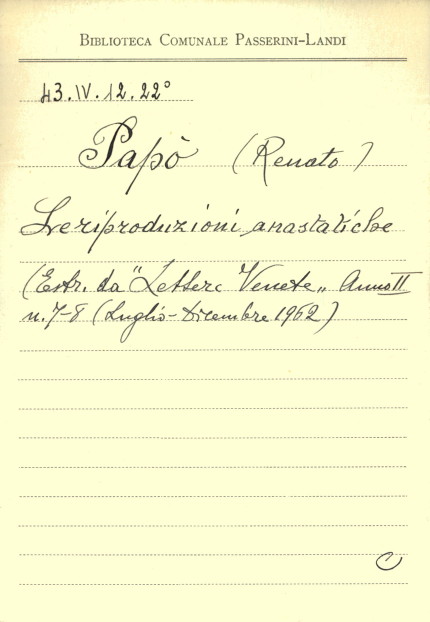 BIBLIOTECA COMUNALE PASSERINI-LANDI
43.IV.12.22°
Papò (Renato)
Le riproduzioni anastatiche
(Estr. da "Lettere Venete„ Anno II
n. 7-8 (Luglio-Dicembre 1962)
C